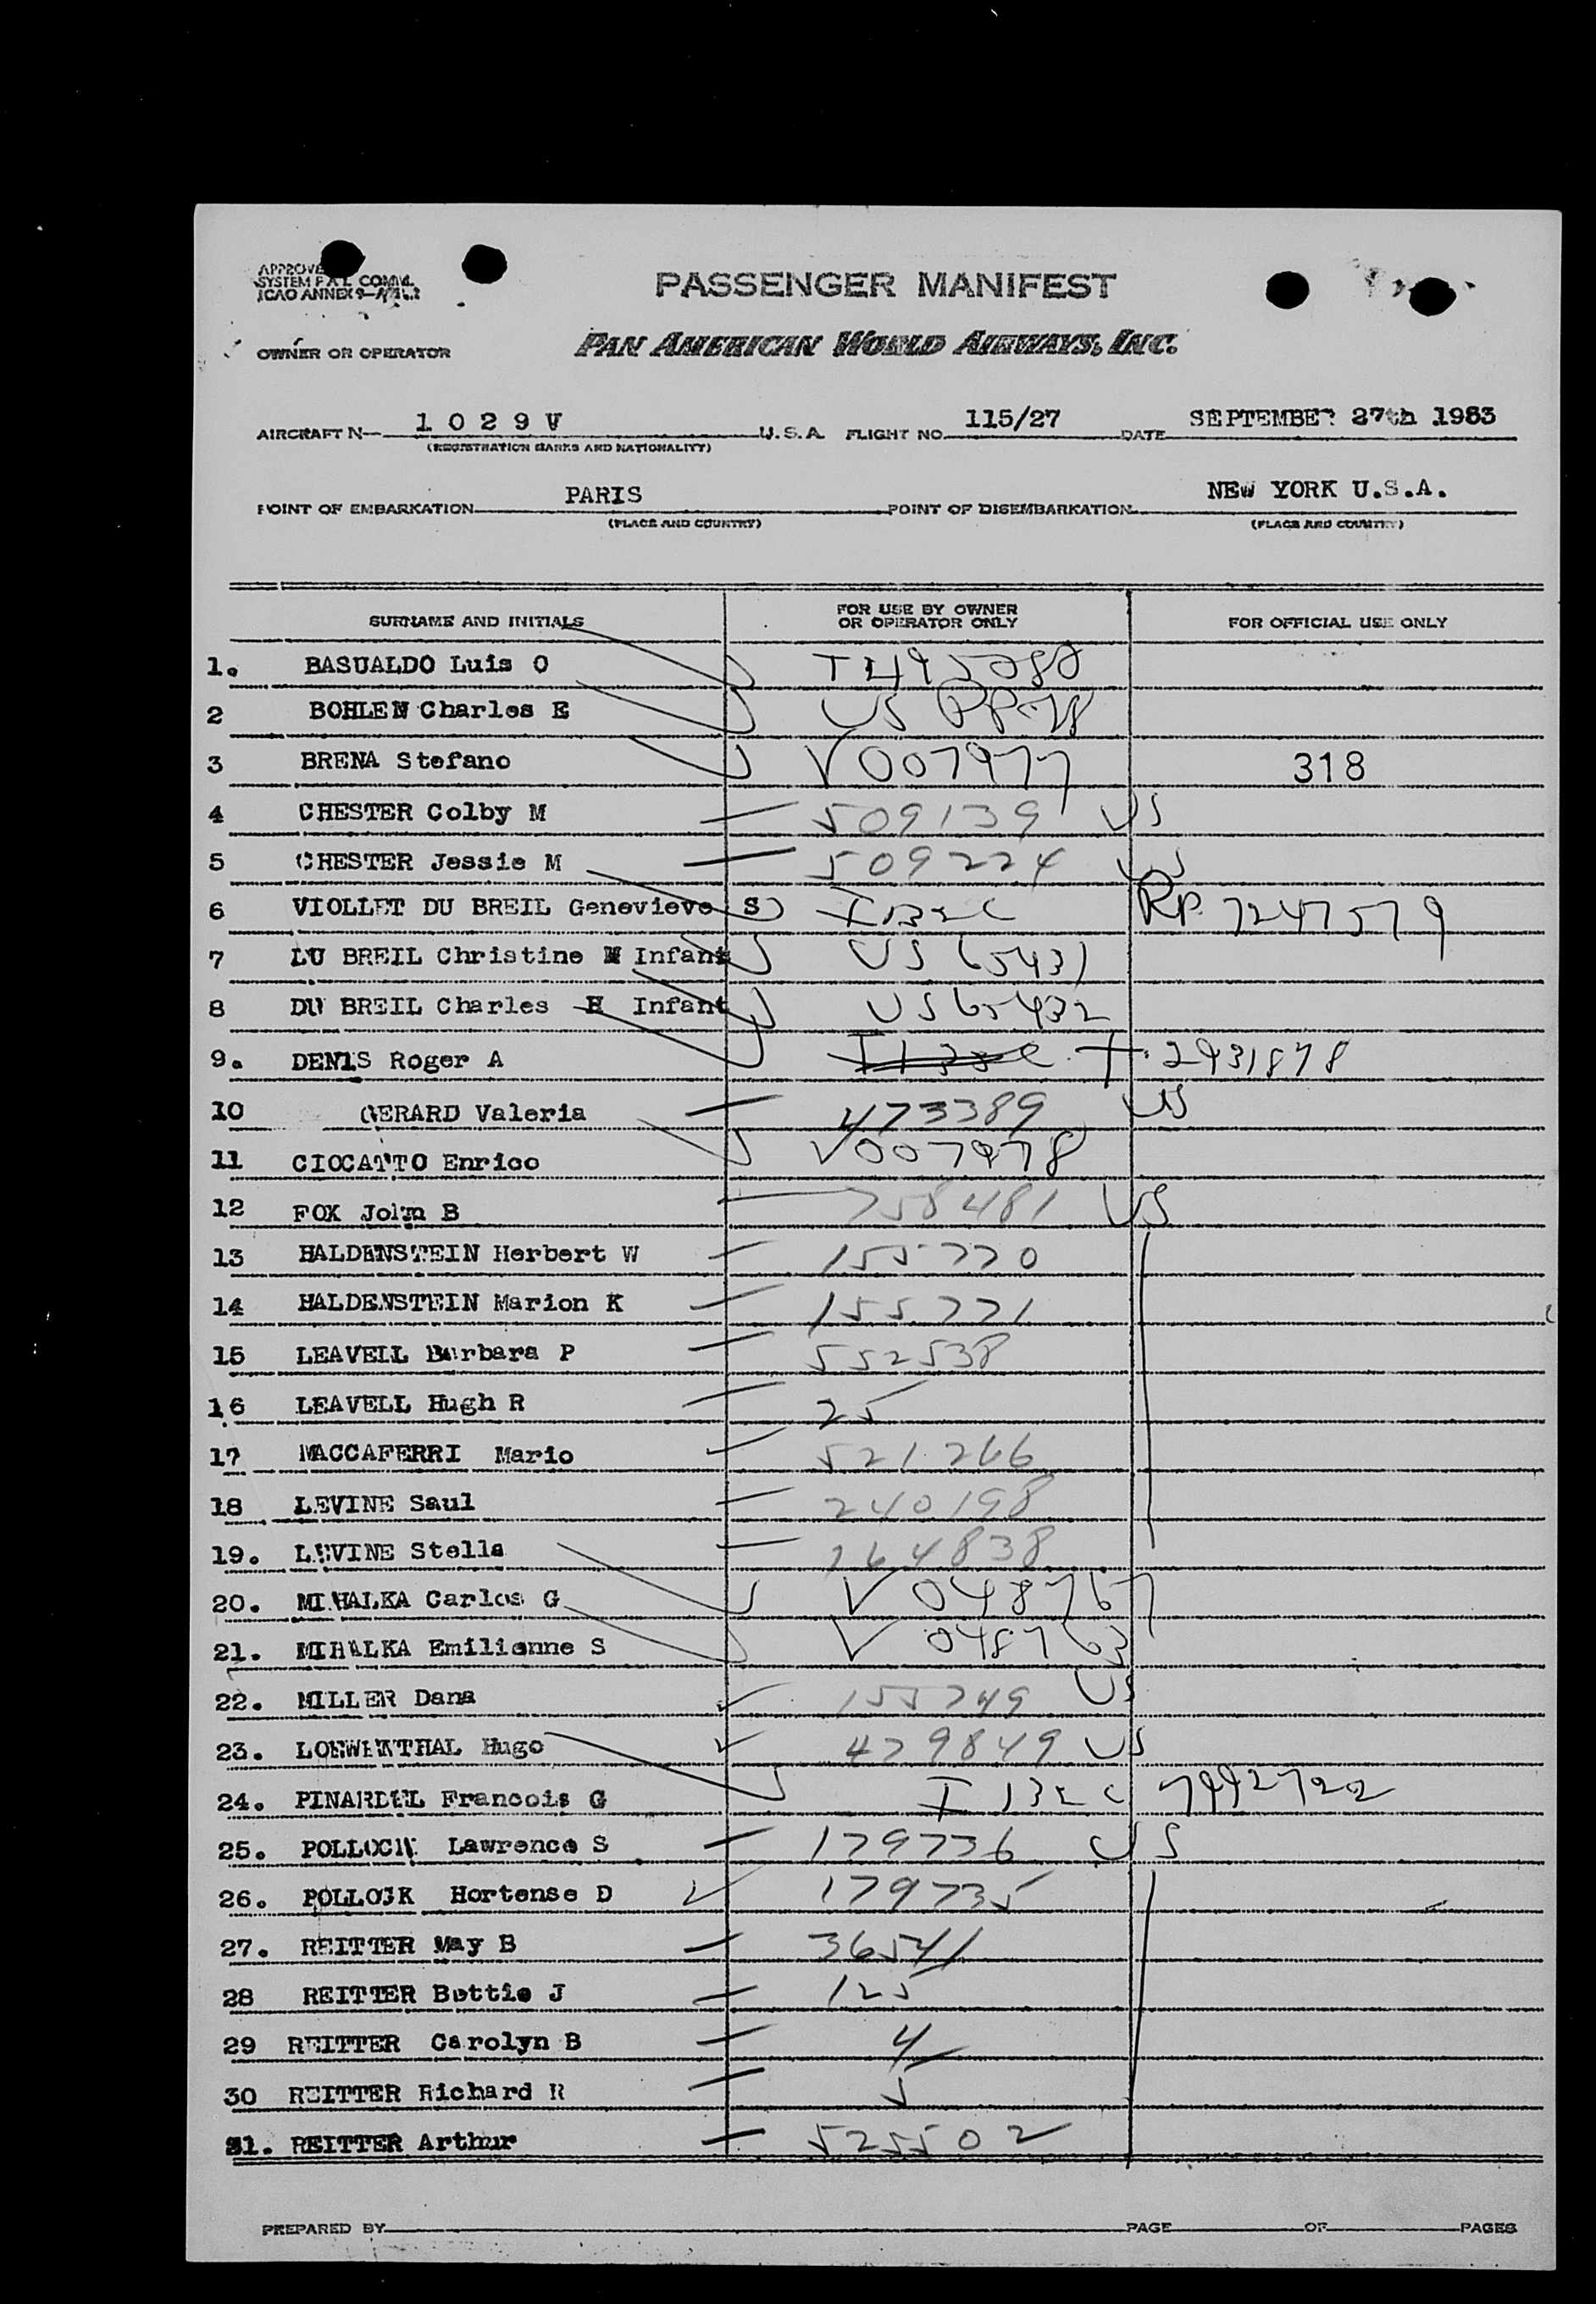 APPROVE
SYSTEM F.A.L. COMM.
ICAO ANNEX 9-
PASSENGER MANIFEST
OWNER OR OPERATOR PAN AMERICAN WORLD AIRWAYS, INC.
AIRCRAFT N- 1 0 2 9 V U.S.A. FLIGHT NO. 115/27 DATE SEPTEMBER 27th 1953
(REGISTRATION MARKS AND NATIONALITY)
POINT OF EMBARKATION PARIS POINT OF DISEMBARKATION NEW YORK U.S.A.
(PLACE AND COUNTRY) (PLACE AND COUNTRY)
SURNAME AND INITIALS FOR USE BY OWNER OR OPERATOR ONLY FOR OFFICIAL USE ONLY
1. BASUALDO Luis O
2 BOHLEN Charles E US
3 BRENA Stefano V 007977 318
4 CHESTER Colby M 509139 US
5 CHESTER Jessie M 509224 US
6 VIOLLET DU BREIL Genevieve S I 132c RP 7247579
7 DU BREIL Christine M Infant US 65431
8 DU BREIL Charles H Infant US 65432
9. DENIS Roger A 2931878
10 GERARD Valeria 473389 US
11 CIOCATTO Enrico V007978
12 FOX John B 758481 US
13 HALDENSTEIN Herbert W 155770
14 HALDENSTEIN Marion K 155771
15 LEAVELL Barbara P 552538
16 LEAVELL Hugh R 25
17 MACCAFERRI Mario 521266
18 LEVINE Saul 240198
19. LEVINE Stella 264838
20. MIHALKA Carlos G V 048767
21. MIHALKA Emilienne S V 048763
22. MILLER Dana 155749 US
23. LOEWENTHAL Hugo 479849 US
24. PINARDEL Francois G I 132c 7992722
25. POLLOCK Lawrence S 179736 US
26. POLLOCK Hortense D 179735
27. REITTER May B 36541
28 REITTER Bettie J 125
29 REITTER Carolyn B 4
30 REITTER Richard R 5
31. REITTER Arthur 525502
PREPARED BY PAGE OF PAGES